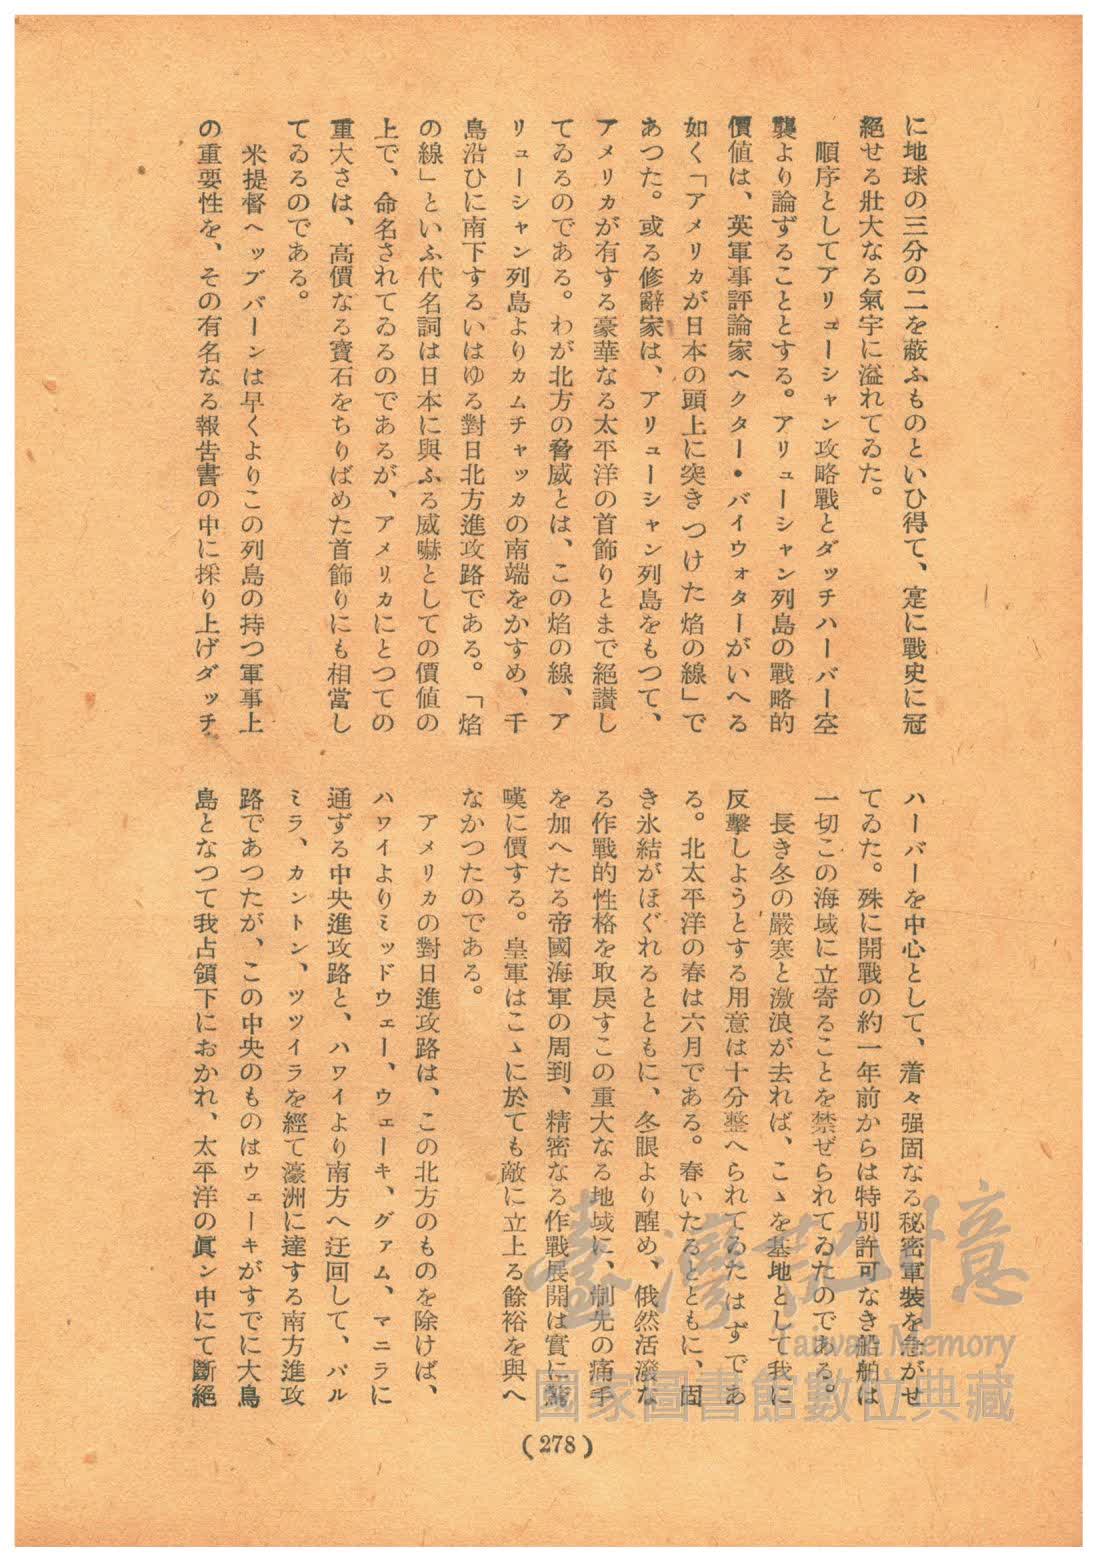 に地球の三分の二を蔽ふものといひ得て、寔に戰史に冠
絕せる壯大なる氣宇に溢れてゐた。
順序としてアリューシャン攻略戰とダッチハーバー空
襲より論ずることとする。アリューシャン列島の戰略的
價値は、英軍事評論家ヘクター・バイウォターがいへる
如く「アメリカが日本の頭上に突きつけた焰の線」で
あつた。或る修辭家は、アリューシャン列島をもつて、
アメリカが有する豪華なる太平洋の首飾りとまで絕讃し
てゐるのである。わが北方の脅威とは、この焰の線、ア
リューシャン列島よりカムチャッカの南端をかすめ、千
島沿ひに南下するいはゆる對日北方進攻路である。「焰
の線」といふ代名詞は日本に與ふる威嚇としての價値の
上で、命名されてゐるのであるが、アメリカにとつての
重大さは、高價なる寶石をちりばめた首飾りにも相當し
てゐるのである。
米提督ヘップバーンは早くよりこの列島の持つ軍事上
の重要性を、その有名なる報吿書の中に採り上げダッチ
ハーバーを中心として、着々强固なる秘密軍裝を急がせ
てゐた。殊に開戰の約一年前からは特別許可なき船舶は
一切この海域に立寄ることを禁ぜられてゐたのである。
長き冬の嚴寒と激浪が去れば、こゝを基地として我に
反擊しようとする用意は十分整へられてゐたはずであ
る。北太平洋の春は六月である。春いたるとともに、固
き氷結がほぐれるとともに、冬眼より醒め、俄然活潑な
る作戰的性格を取戾すこの重大なる地域に、制先の痛手
を加へたる帝國海軍の周到、精密なる作戰展開は實に驚
嘆に價する。皇軍はこゝに於ても敵に立上る餘裕を與へ
なかつたのである。
アメリカの對日進攻路は、この北方のものを除けば、
ハワイよりミッドウェー、ウェーキ、グァム、マニラに
通ずる中央進攻路と、ハワイより南方へ迂回して、パル
ミラ、カントン、ツツイラを經て濠洲に達する南方進攻
路であつたが、この中央のものはウェーキがすでに大鳥
島となつて我占領下におかれ、太平洋の眞ン中にて斷絕
(278)
臺灣記憶
Taiwan Memory
國家圖書館數位典藏